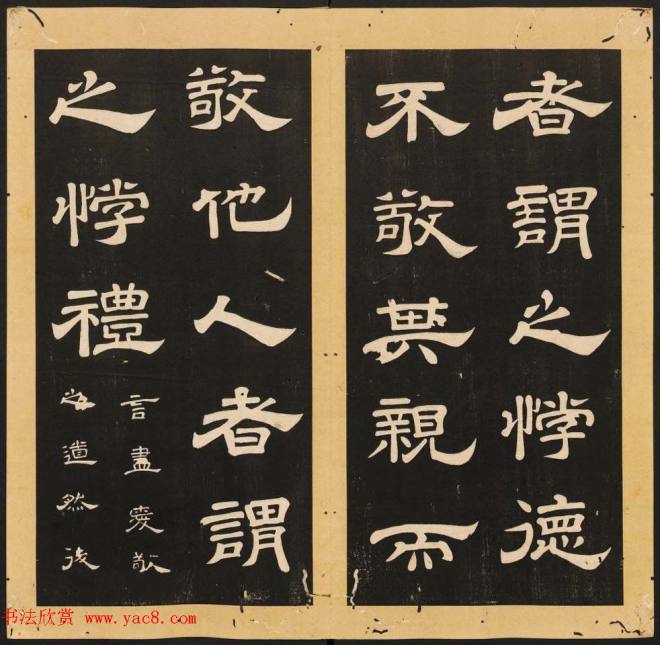 者謂之悖德
不敬其親而
敬他人者謂
之悖禮
言盡愛敬
之道然後
书法欣赏 www.yac8.com